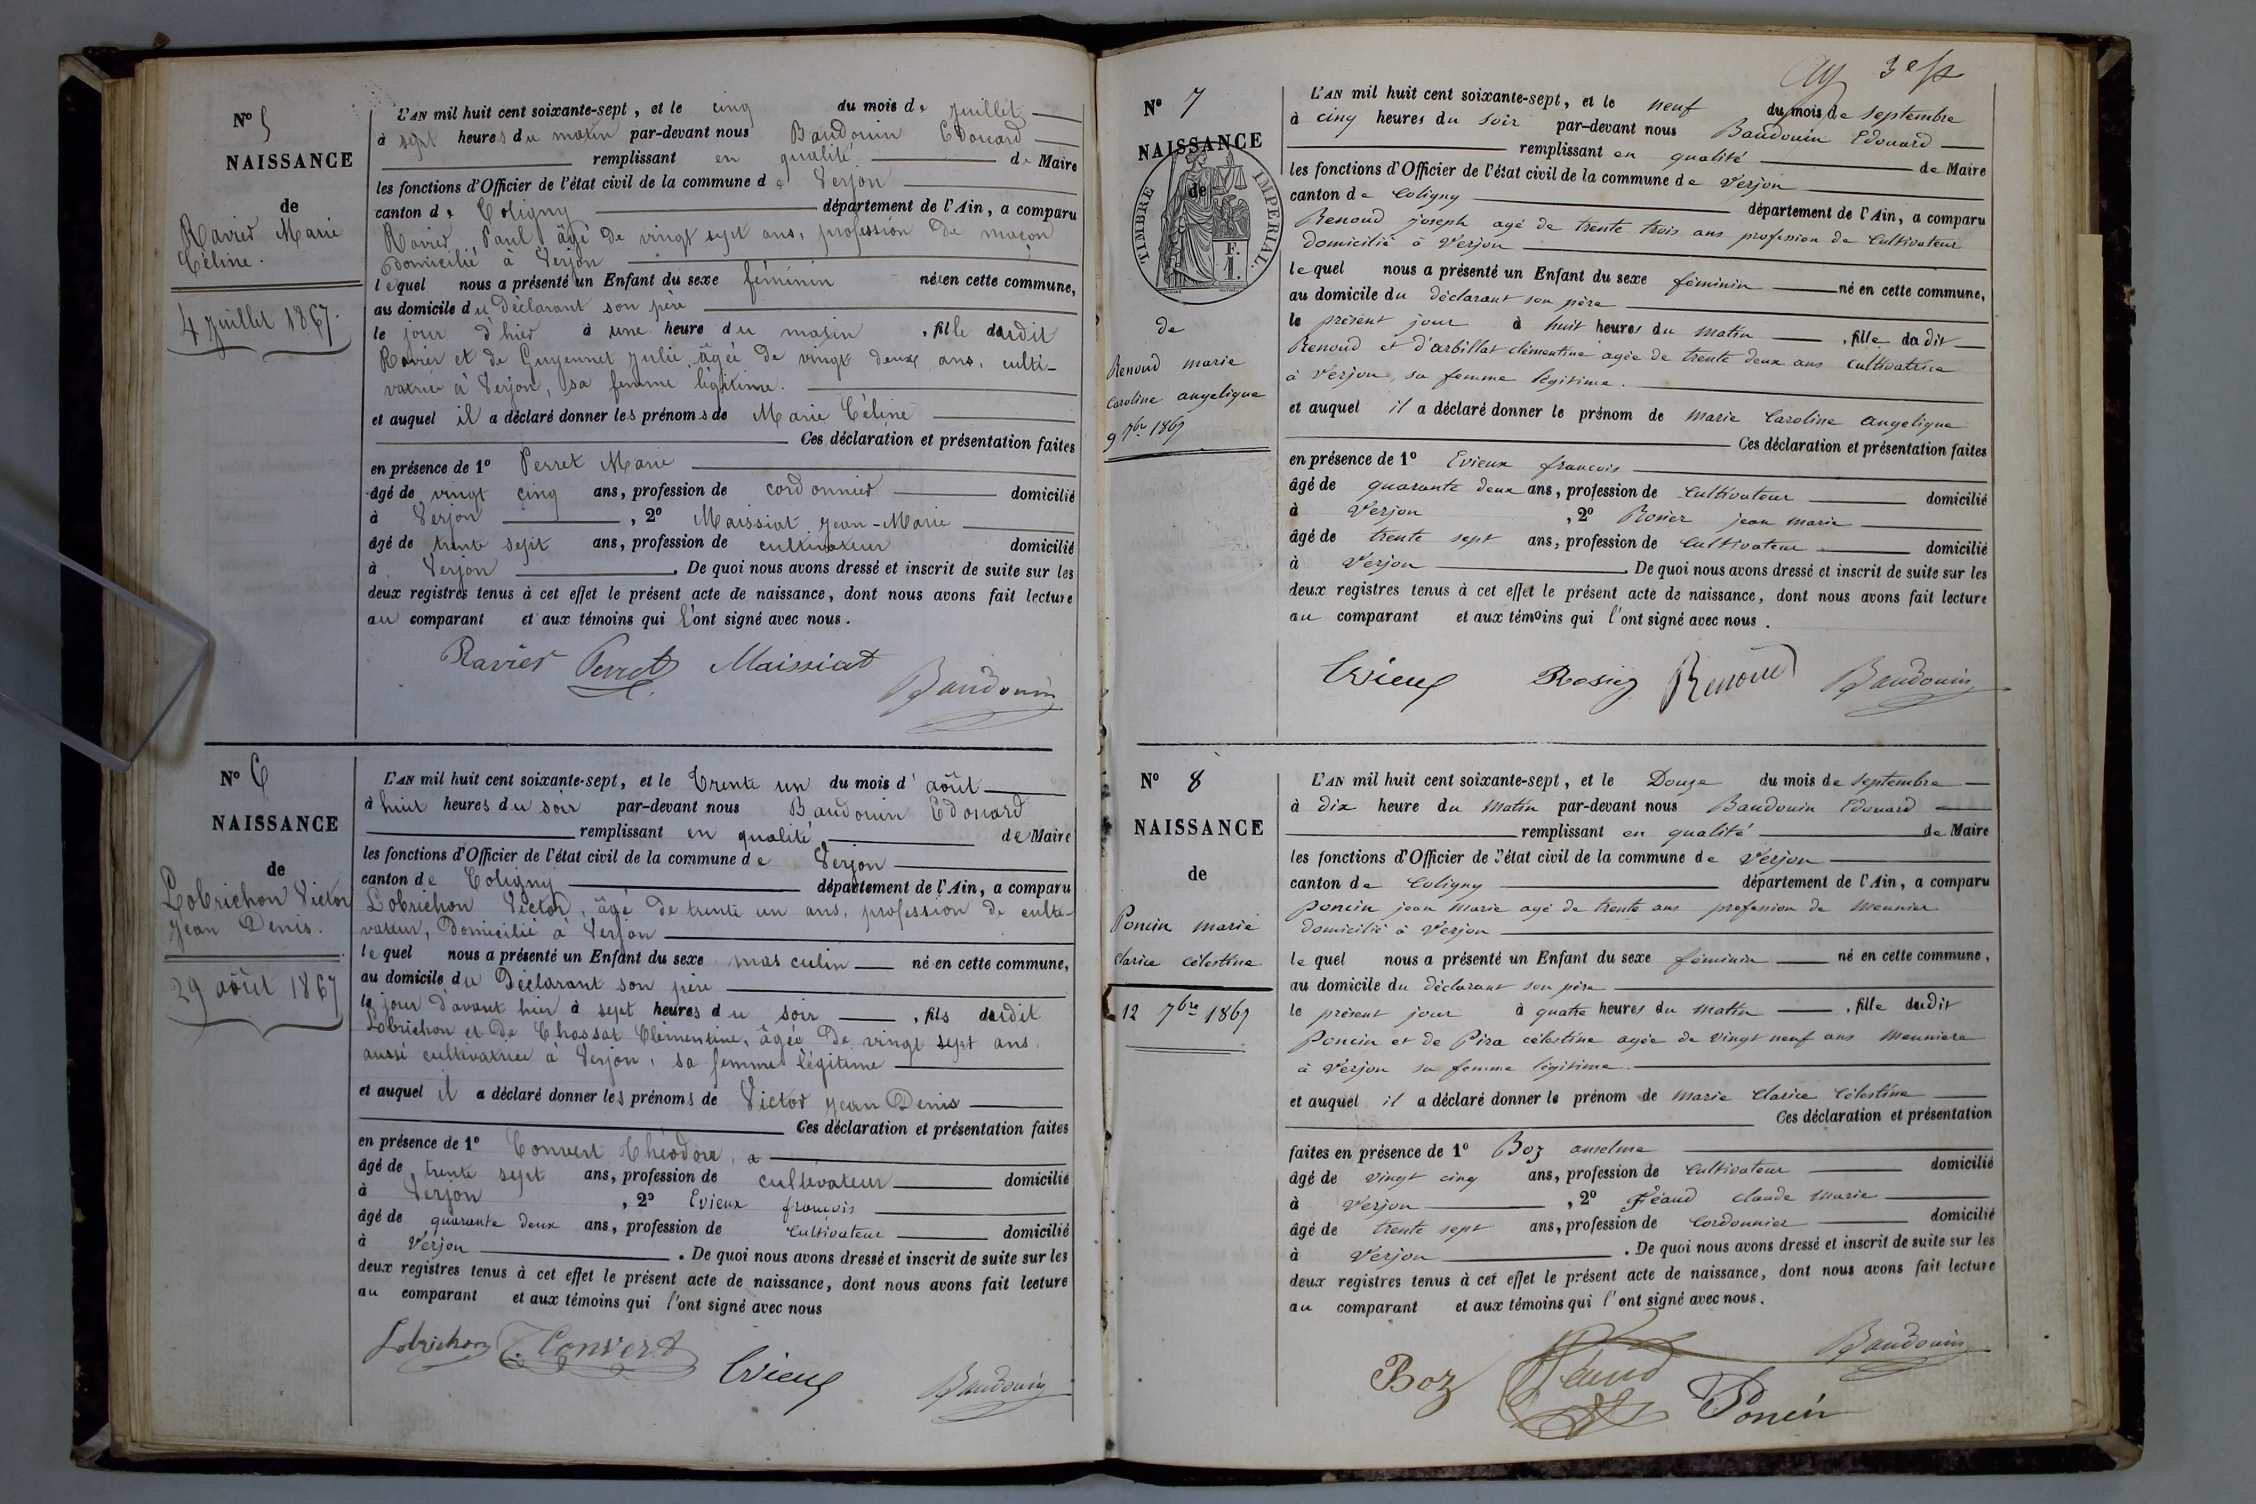 N° 5
NAISSANCE
de
Ravier Marie
Céline.
4 Juillet 1867.
L'AN mil huit cent soixante-sept, et le cinq du mois de Juillet
à sept heures du matin par-devant nous Baudouin Edouard
remplissant en qualité de Maire
les fonctions d'Officier de l'état civil de la commune de Verjon
canton de Coligny département de l'Ain, a comparu
Ravier Paul âgé de vingt sept ans, profession de maçon
domicilié à Verjon
lequel nous a présenté un Enfant du sexe féminin né en cette commune,
au domicile du Déclarant son père
le jour d'hier à une heure du matin, fille dudit
Ravier et de Guyennet Julie, âgée de vingt deux ans, culti-
vatrice à Verjon, sa femme légitime.
et auquel il a déclaré donner les prénoms de Marie Céline
Ces déclaration et présentation faites
en présence de 1° Perret Marie
âgé de vingt cinq ans, profession de cordonnier domicilié
à Verjon, 2° Maissiat Jean-Marie
âgé de trente sept ans, profession de cultivateur domicilié
à Verjon. De quoi nous avons dressé et inscrit de suite sur les
deux registres tenus à cet effet le présent acte de naissance, dont nous avons fait lecture
au comparant et aux témoins qui l'ont signé avec nous.
Ravier Perret Maissiat Baudouin
N° 6
NAISSANCE
de
Lobrichon Victor
Jean Denis.
29 août 1867
L'AN mil huit cent soixante-sept, et le Trente un du mois d'août
à huit heures du soir par-devant nous Baudouin Edouard
remplissant en qualité de Maire
les fonctions d'Officier de l'état civil de la commune de Verjon
canton de Coligny département de l'Ain, a comparu
Lobrichon Victor, âgé de trente un ans, profession de culti-
vateur, Domicilié à Verjon
lequel nous a présenté un Enfant du sexe masculin né en cette commune,
au domicile du Déclarant son père
le jour d'avant hier à sept heures du soir, fils dudit
Lobrichon et de Chossat Clémentine, âgée De vingt sept ans
aussi cultivatrice à Verjon, sa femme légitime
et auquel il a déclaré donner les prénoms de Victor Jean Denis
Ces déclaration et présentation faites
en présence de 1° Convert Théodore, a
âgé de trente sept ans, profession de cultivateur domicilié
à Verjon, 2° Evieux françois
âgé de quarante deux ans, profession de Cultivateur domicilié
à Verjon. De quoi nous avons dressé et inscrit de suite sur les
deux registres tenus à cet effet le présent acte de naissance, dont nous avons fait lecture
au comparant et aux témoins qui l'ont signé avec nous
Lobrichon T. Convert Evieux Baudouin
3e
N° 7
NAISSANCE
de
TIMBRE IMPERIAL.
F. 1.
de
Renoud marie
Caroline angelique
9 7bre 1867
L'AN mil huit cent soixante-sept, et le neuf du mois de septembre
à cinq heures du soir par-devant nous Baudouin Edouard
remplissant en qualité de Maire
les fonctions d'Officier de l'état civil de la commune de Verjon
canton de Coligny département de l'Ain, a comparu
Renoud joseph agé de trente trois ans profession de Cultivateur
domicilié à Verjon
lequel nous a présenté un Enfant du sexe féminin né en cette commune,
au domicile du déclarant son père
le présent jour à huit heures du matin, fille dudit
Renoud et d'arbillat clémentine agée de trente deux ans Cultivatrice
à Verjon, sa femme légitime.
et auquel il a déclaré donner le prénom de marie Caroline angelique
Ces déclaration et présentation faites
en présence de 1° Evieux françois
âgé de quarante deux ans, profession de Cultivateur domicilié
à Verjon, 2° Rosier jean marie
âgé de trente sept ans, profession de Cultivateur domicilié
à Verjon. De quoi nous avons dressé et inscrit de suite sur les
deux registres tenus à cet effet le présent acte de naissance, dont nous avons fait lecture
au comparant et aux témoins qui l'ont signé avec nous.
Evieux Rosier Renoud Baudouin
N° 8
NAISSANCE
de
Poncin marie
clarice célestine
12 7bre 1867
L'AN mil huit cent soixante-sept, et le Douze du mois de septembre
à dix heure du matin par-devant nous Baudouin Edouard
remplissant en qualité de Maire
les fonctions d'Officier de l'état civil de la commune de Verjon
canton de Coligny département de l'Ain, a comparu
poncin jean marie agé de trente ans profession de meunier
domicilié à Verjon
lequel nous a présenté un Enfant du sexe féminin né en cette commune,
au domicile du déclarant son père
le présent jour à quatre heures du matin, fille dudit
Poncin et de Pira célestine agée de vingt neuf ans meuniere
à Verjon sa femme légitime.
et auquel il a déclaré donner le prénom de marie Clarice Célestine
Ces déclaration et présentation
faites en présence de 1° Boz anselme
âgé de vingt cinq ans, profession de Cultivateur domicilié
à Verjon, 2° Féaud claude marie
âgé de trente sept ans, profession de Cordonnier domicilié
à Verjon. De quoi nous avons dressé et inscrit de suite sur les
deux registres tenus à cet effet le présent acte de naissance, dont nous avons fait lecture
au comparant et aux témoins qui l'ont signé avec nous.
Boz Féaud Poncin Baudouin